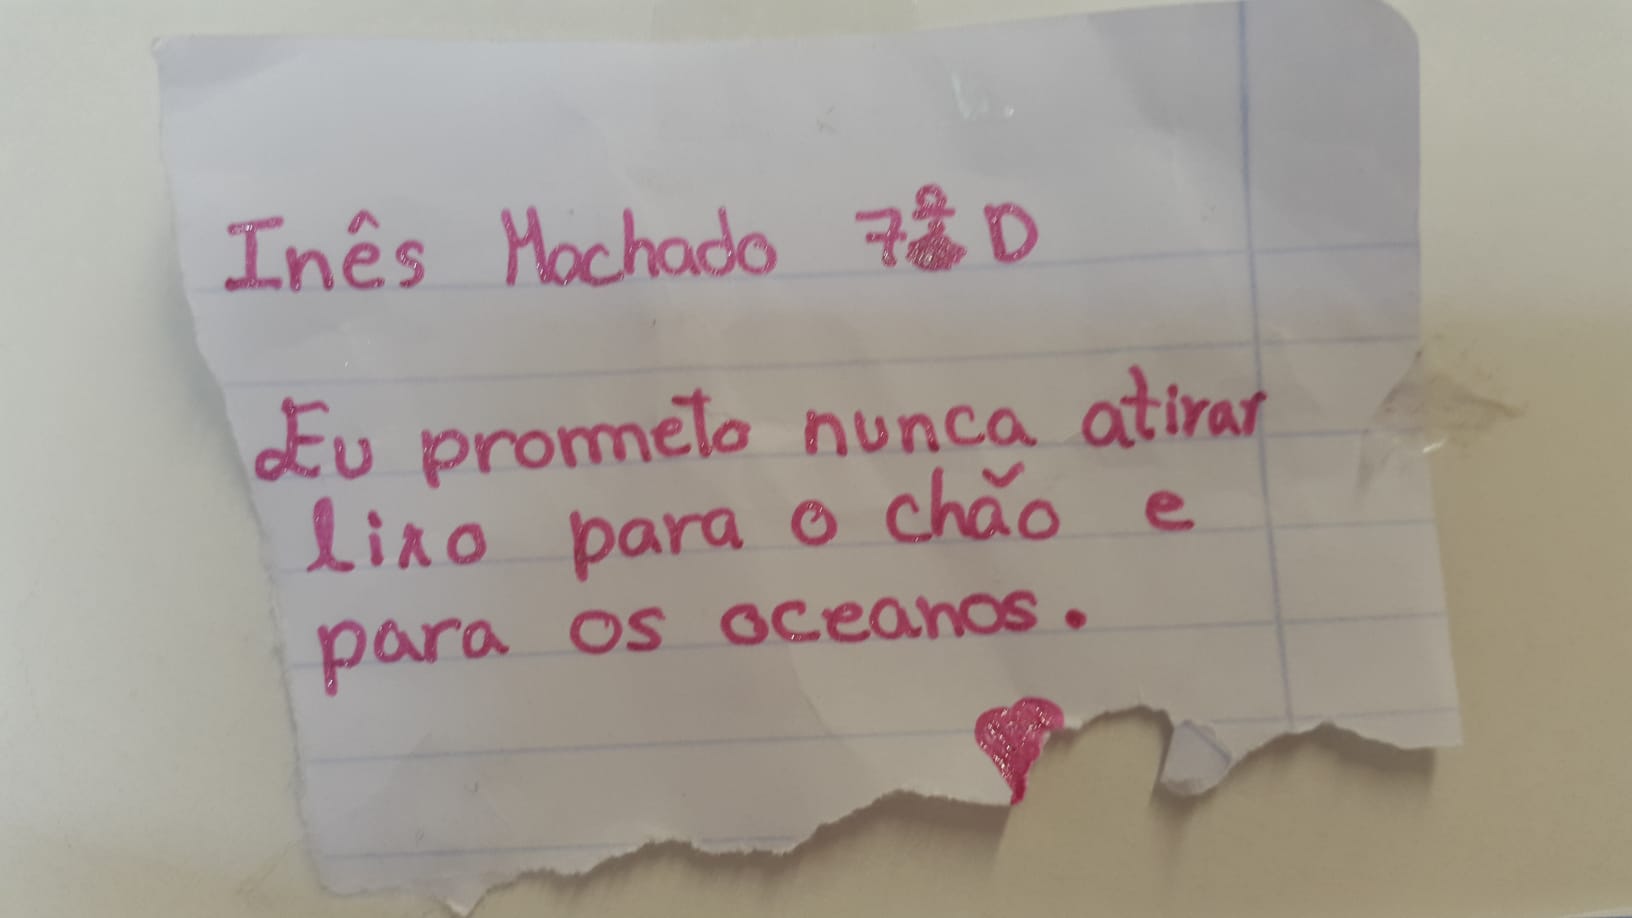 Inês Machado 7º D
Eu prometo nunca atirar
lixo para o chão e
para os oceanos.